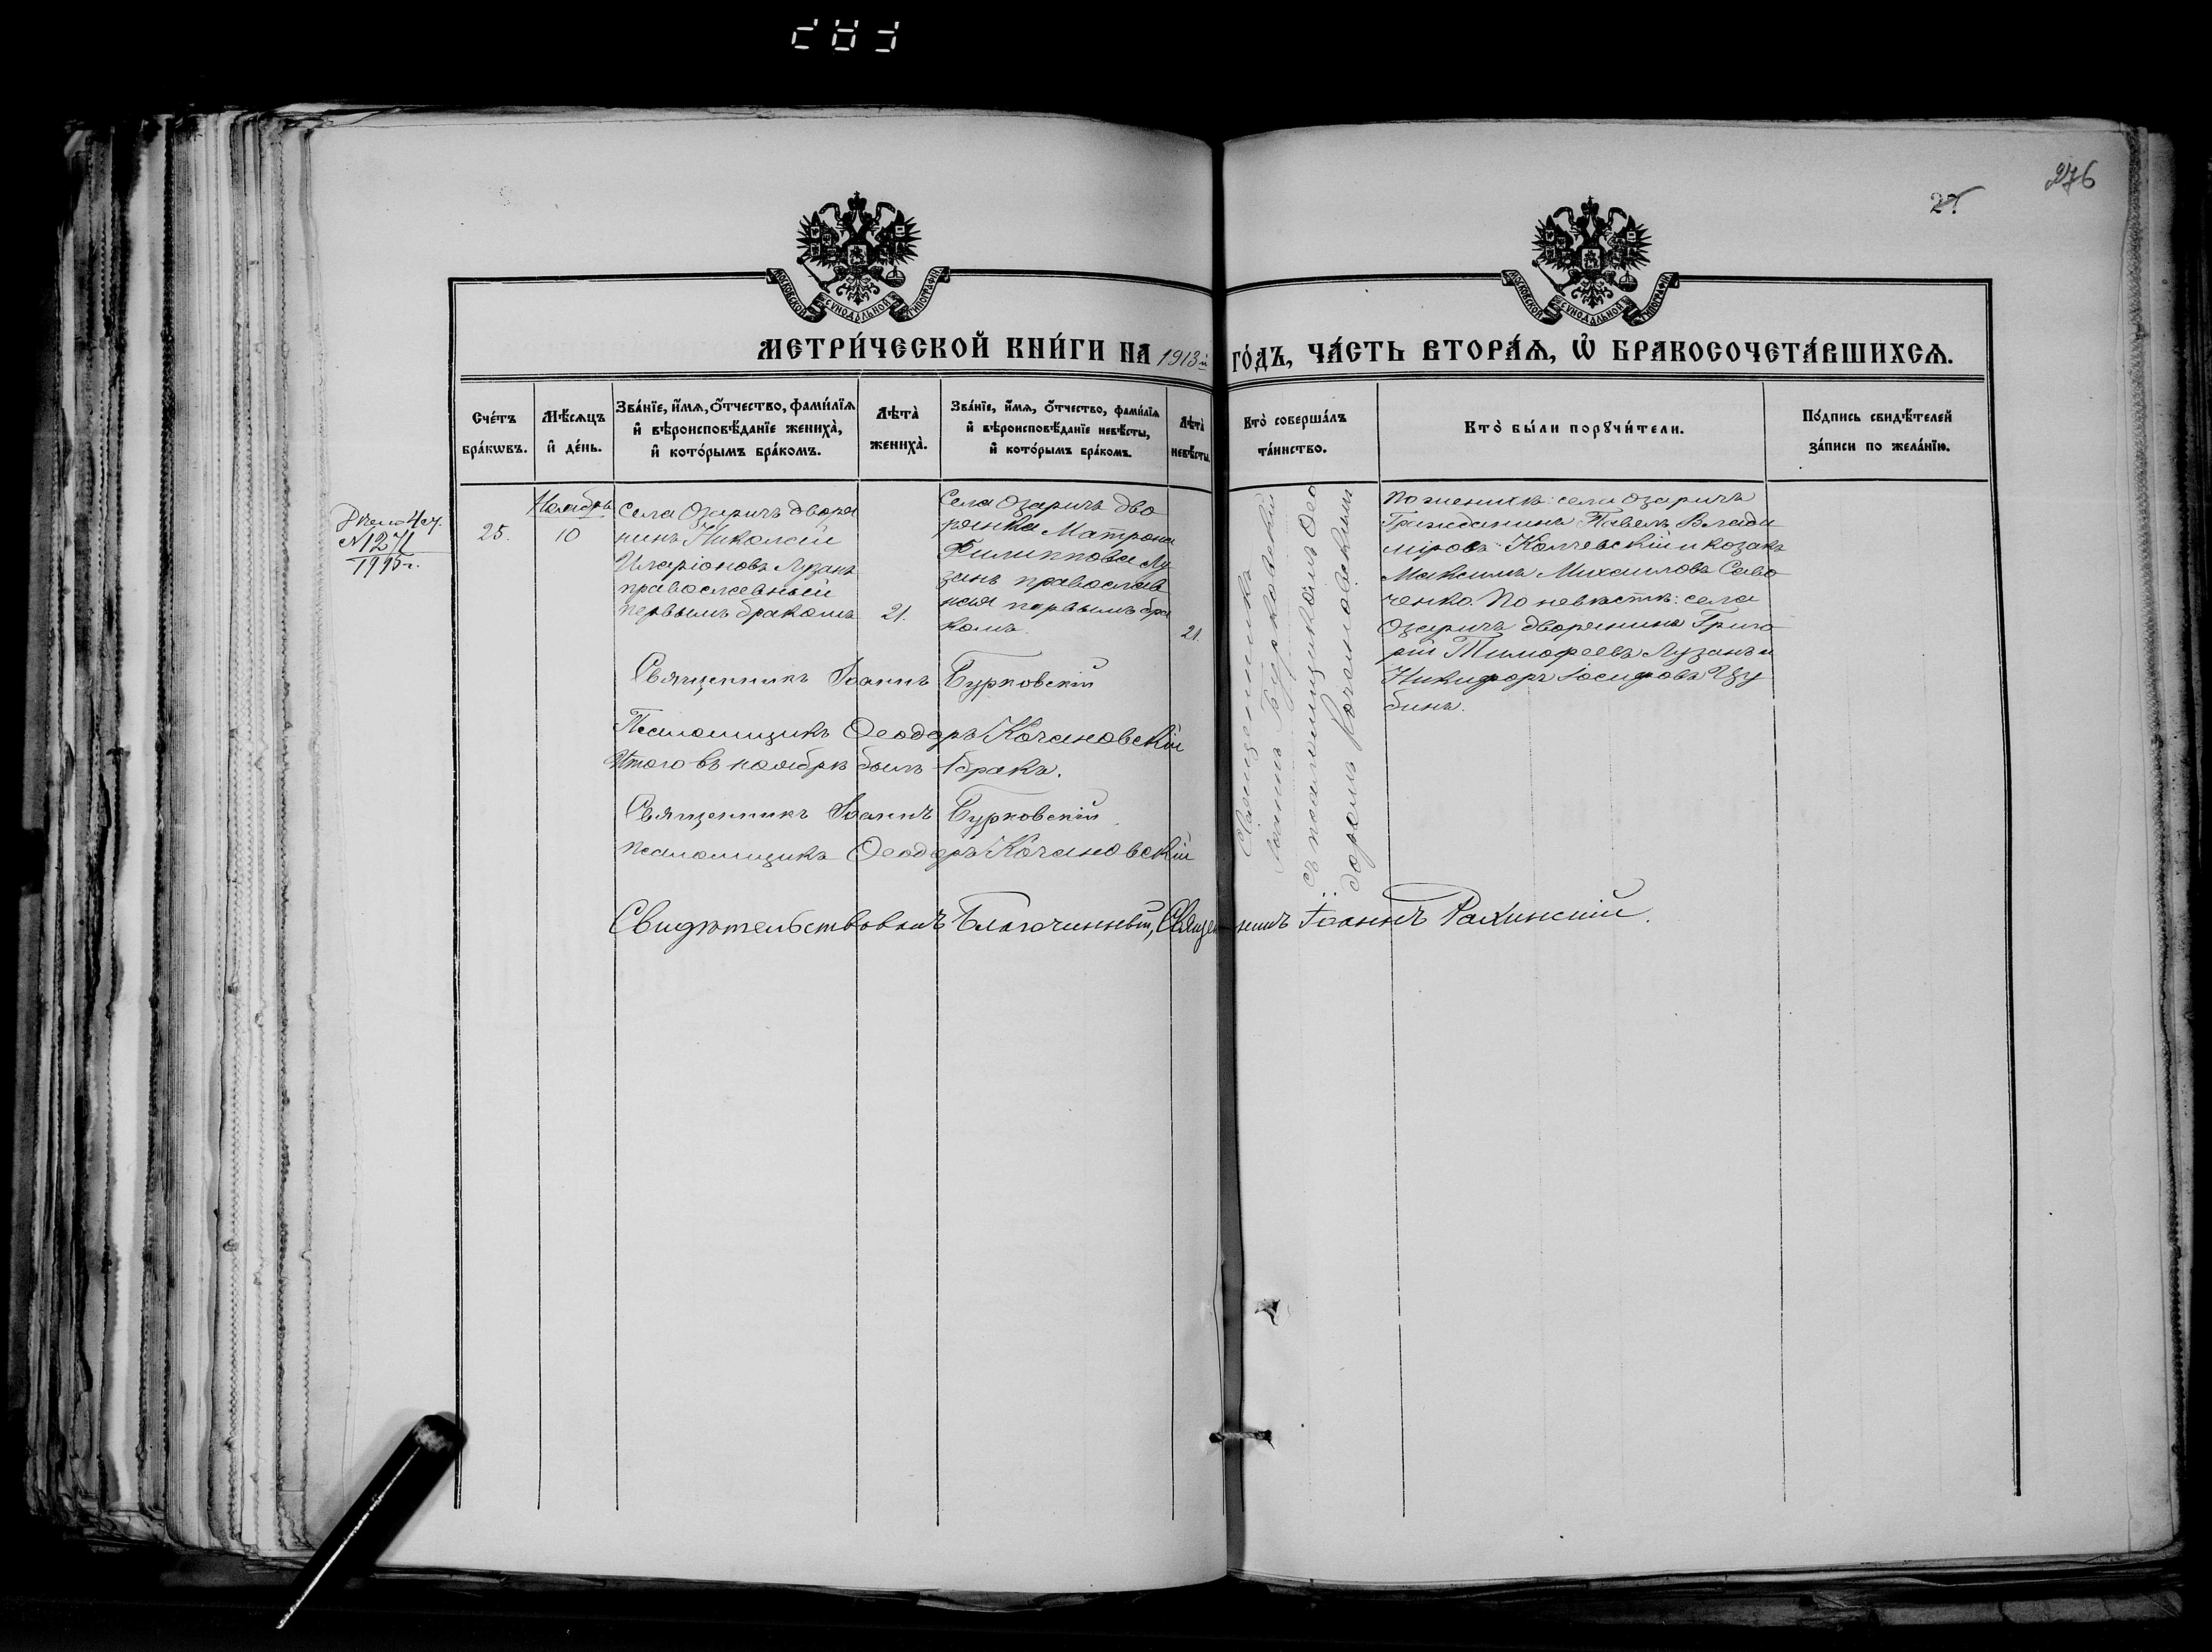 276
27
МОСКОВСКОЙ СѴНОДАЛЬНОЙ ТИПОГРАФІИ
МОСКОВСКОЙ СѴНОДАЛЬНОЙ ТИПОГРАФІИ
МЕТРИ́ЧЕСКОЙ КНИ́ГИ НА 1913й ГО́ДЪ, ЧА́СТЬ ВТОРА́Ѧ, Ѡ҆ БРАКОСОЧЕТА́ВШИХСѦ.
Сче́тъ бра́кѡвъ.
Мѣ́сѧцъ и҆ де́нь.
Зва́нїе, и҆́мѧ, ѻ҆́тчество, фами́лїѧ и҆ вѣроисповѣ́данїе жениха̀, и҆ кото́рымъ бра́комъ.
Лѣта̀ жениха̀.
Зва́нїе, и҆́мѧ, ѻ҆́тчество, фами́лїѧ и҆ вѣроисповѣ́данїе невѣ́сты, и҆ кото́рымъ бра́комъ.
Лѣта̀ невѣ́сты.
Кто̀ соверша́лъ та́инство.
Кто̀ бы́ли порꙋчи́тели.
По́дпись свидѣ́телей за́писи по жела́нїю.
№ 1271
1915 г.
25.
Ноябрь
10
Села Озаричъ дворя
нинъ Николай
Иларіоновъ Лузанъ
православный
первымъ бракомъ
21.
Села Озаричъ дво
рянка Матрона
Филиппова Лу
занъ православ
ная первымъ бра
комъ.
21.
Священникъ
Іоаннъ Бурковскій
съ псаломщикомъ Ѳео
доромъ Кочановскимъ
По женихѣ: села Озаричъ
Гражданинъ Павелъ Влади
міровъ Колчевскій и козакъ
Максимъ Михаиловъ Саво
ченко. По невѣстѣ: села
Озаричъ дворянинъ Григо
рій Тимофеевъ Лузанъ и
Никифоръ Іосифовъ Цу
бинъ.
Священникъ Іоаннъ Бурковскій
Псаломщикъ Ѳеодоръ Кочановскій
Итого въ ноябрѣ былъ 1 бракъ.
Священникъ Іоаннъ Бурковскій
Псаломщикъ Ѳеодоръ Кочановскій
Свидѣтельствовалъ Благочинный, Священникъ Іоаннъ Рахинскій.